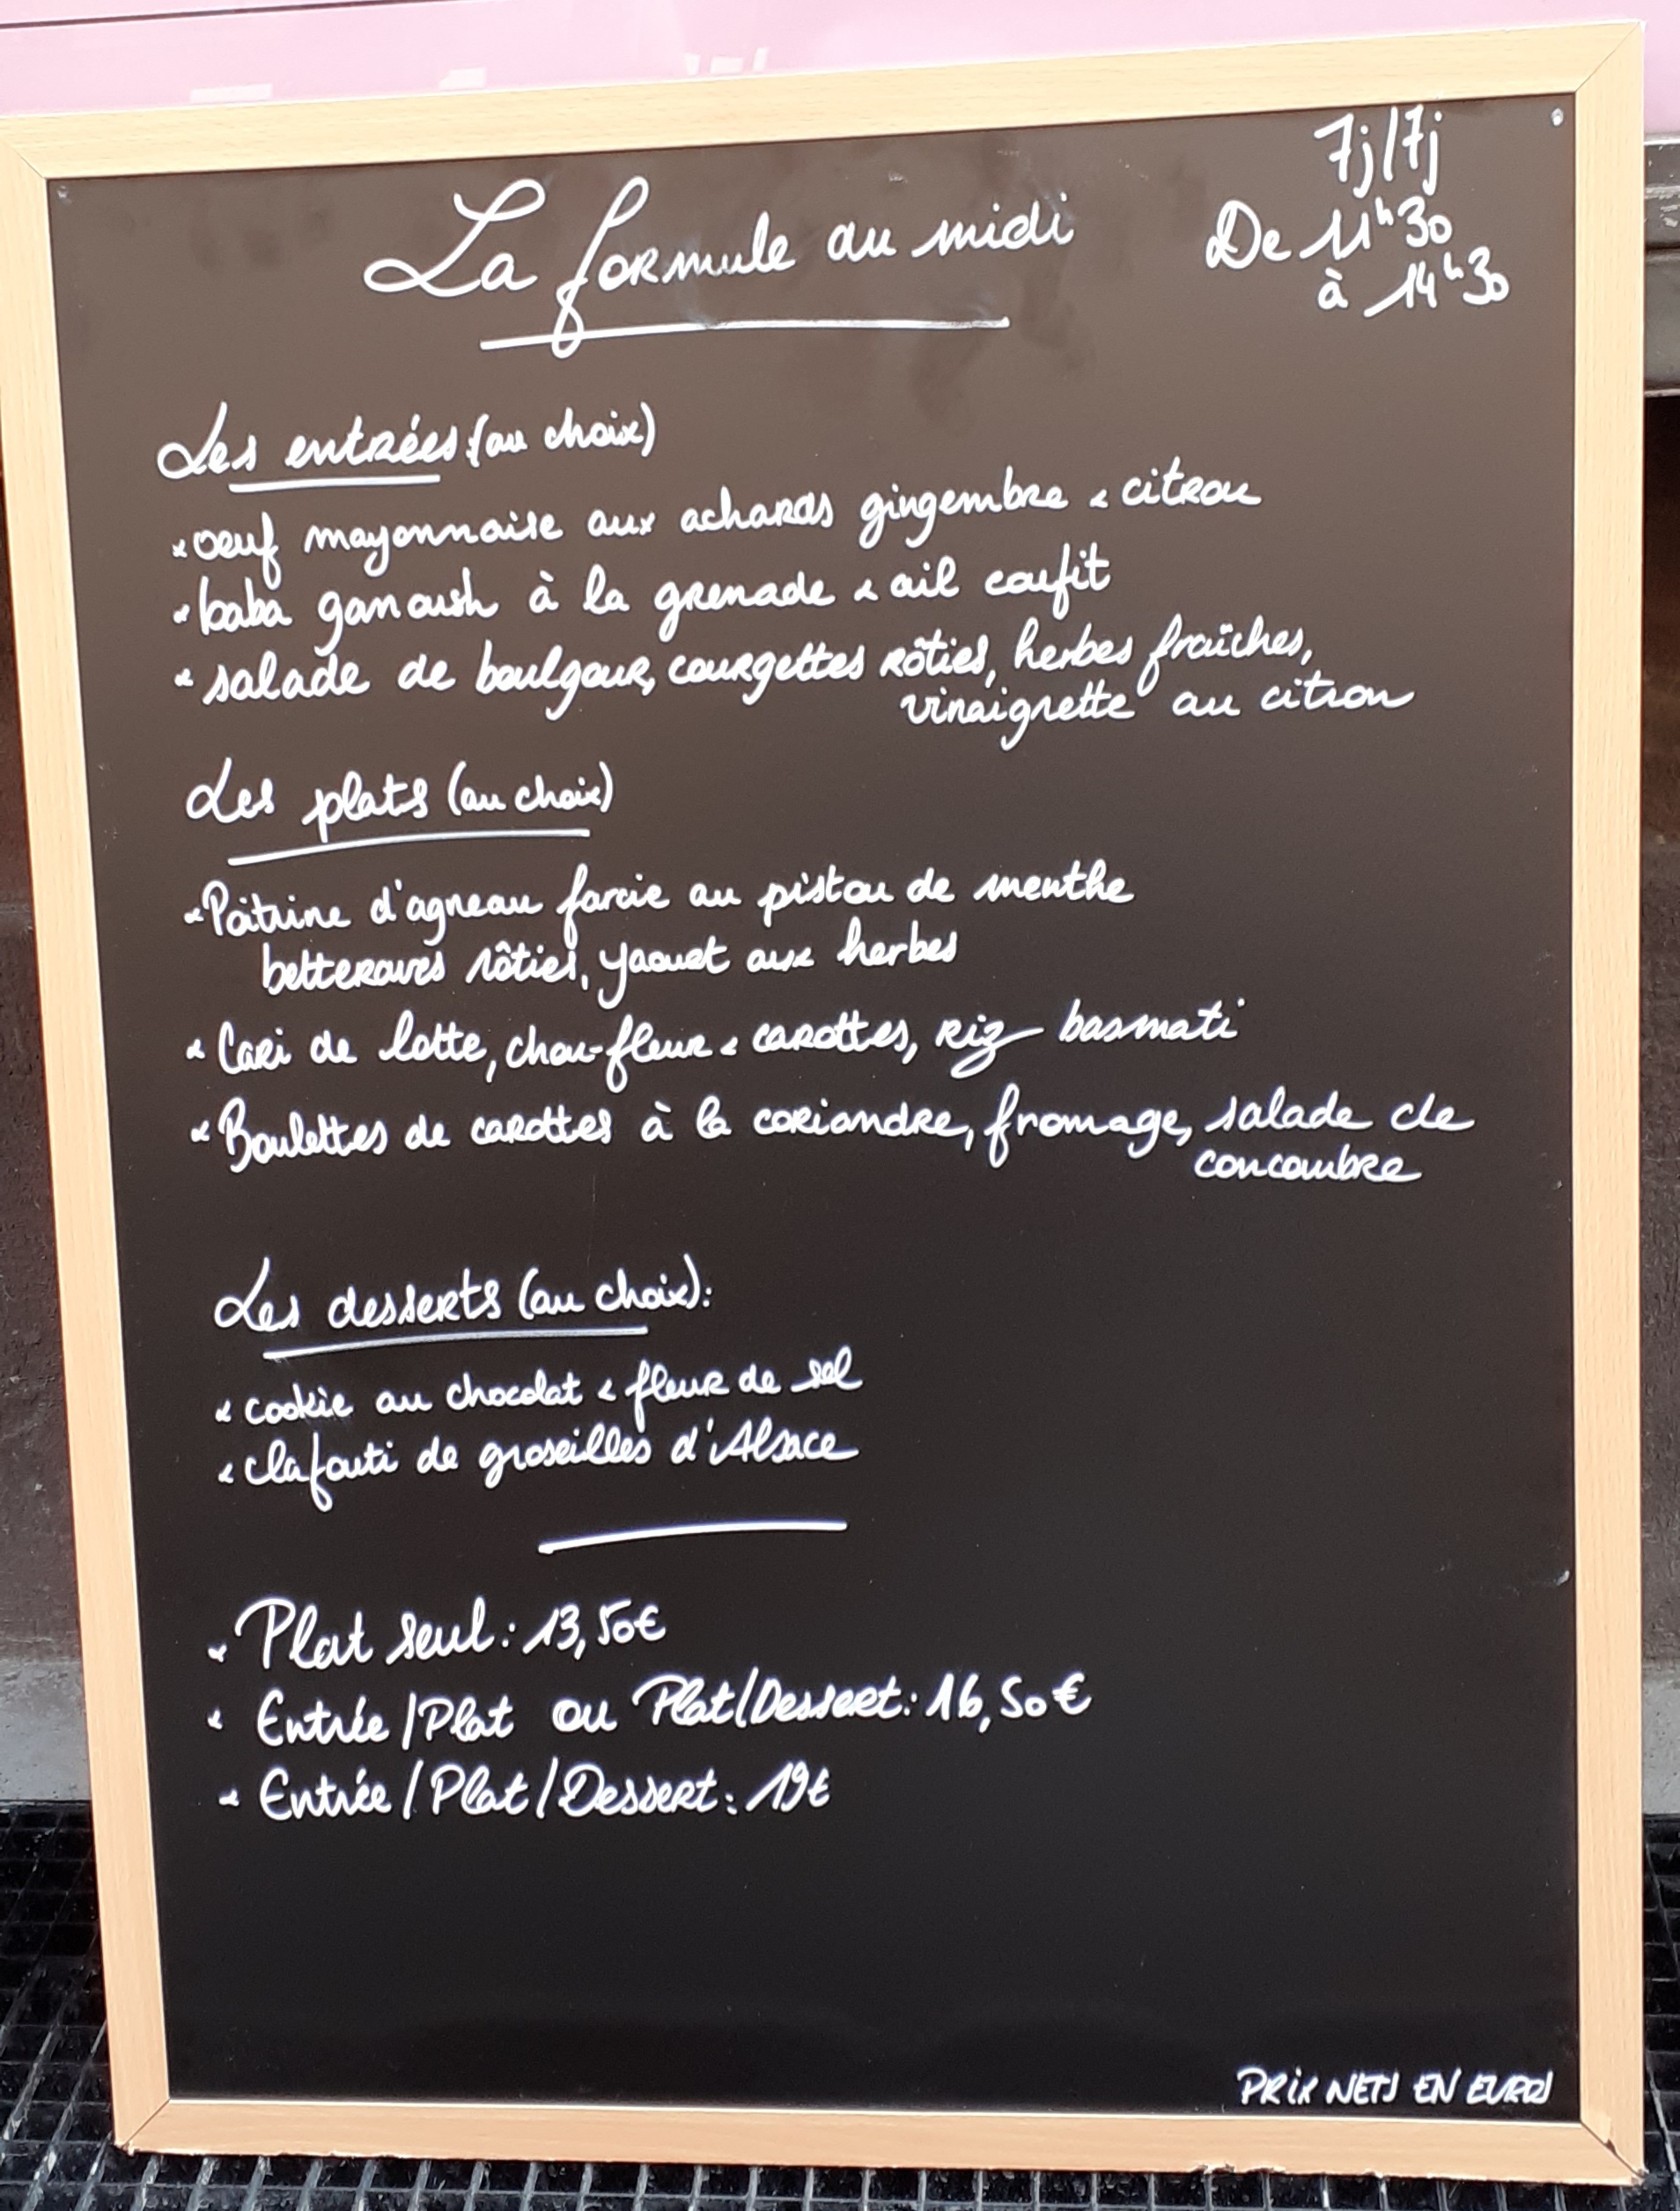 La formule du midi
7j/7j
De 11h30
à 14h30
Les entrées: (au choix)
oeuf mayonnaise aux achards gingembre & citron
baba ganoush à la grenade & ail confit
salade de boulgour, courgettes rôties, herbes fraîches,
vinaigrette au citron
Les plats (au choix)
Poitrine d'agneau farcie au pistou de menthe
betteraves rôties, yaourt aux herbes
Cari de lotte, chou-fleur & carottes, riz basmati
Boulettes de carottes à la coriandre, fromage, salade de
concombre
Les desserts (au choix):
cookie au chocolat & fleur de sel
clafouti de groseilles d'Alsace
Plat seul: 13,50€
Entrée/Plat ou Plat/Dessert: 16,50€
Entrée/Plat/Dessert: 19€
PRIX NETS EN EUROS